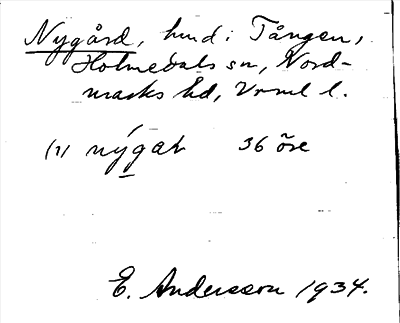 Nygård, hmd i Tången,
Holmedals sn, Nord-
marks hd, Vrml l.
(1) nýgaʀ 36 öre
E. Andersson 1934.